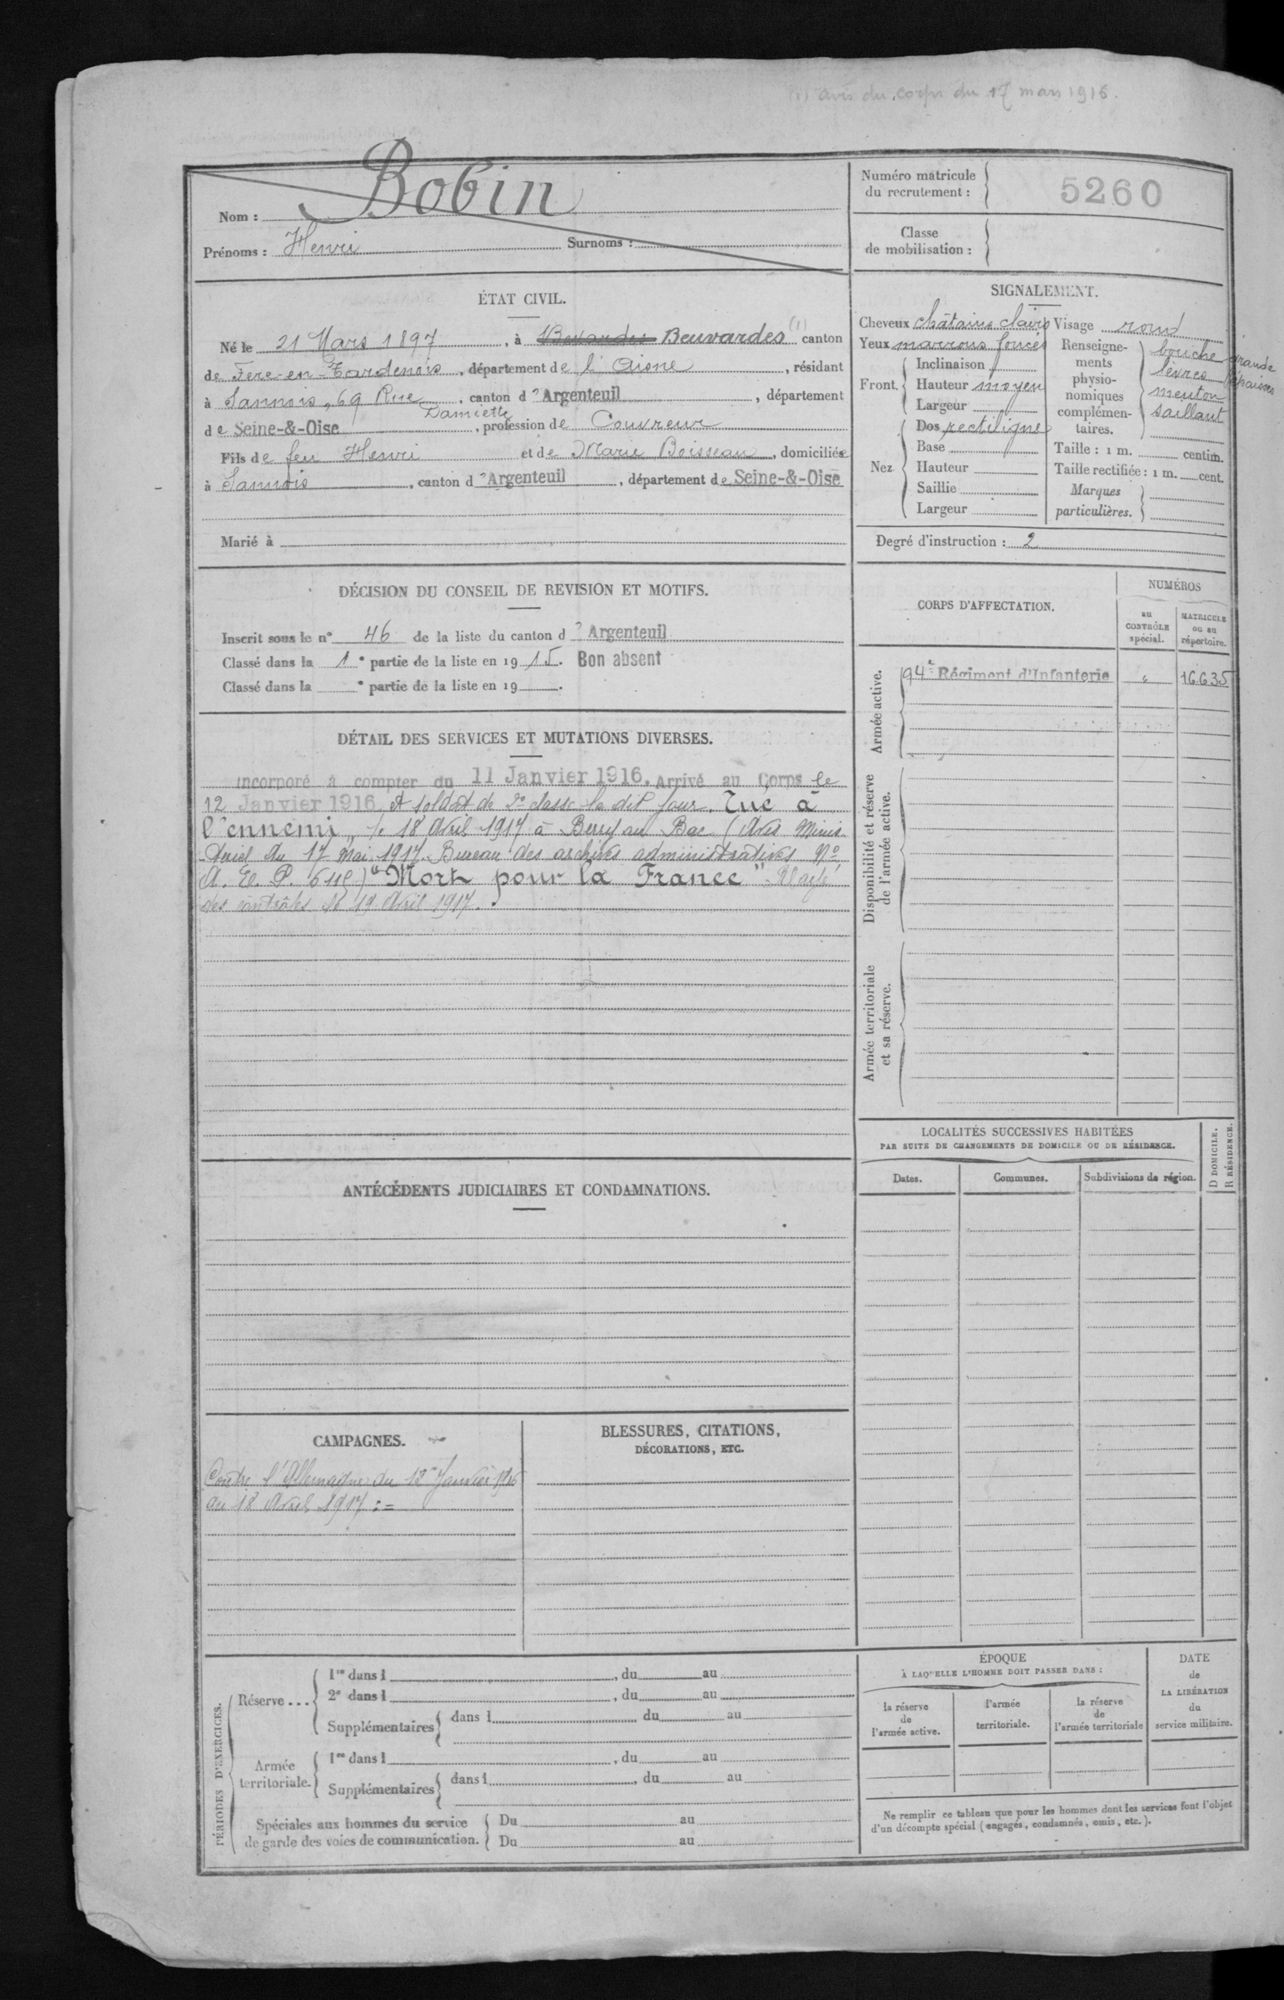 (1) avis du corps du 17 mars 1916.
Nom : Bobin
Prénoms : Henri Surnoms :
Numéro matricule du recrutement : 5260
Classe de mobilisation :
ÉTAT CIVIL.
Né le 21 Mars 1897, à Beuvardes (1) canton
de Fère-en-Tardenois, département de l'Aisne, résidant
à Sannois, 69 Rue Damiette, canton d'Argenteuil, département
de Seine-&-Oise, profession de Couvreur
Fils de feu Henri et de Marie Boisseau, domiciliés
à Sannois, canton d'Argenteuil, département de Seine-&-Oise
Marié à
SIGNALEMENT.
Cheveux châtains clairs
Yeux marrons foncés
Front.
Inclinaison
Hauteur moyen
Largeur
Nez
Dos rectiligne
Base
Hauteur
Saillie
Largeur
Visage rond
Renseignements physionomiques complémentaires.
bouche grande
lèvres épaisses
menton
saillant
Taille : 1 m. centim.
Taille rectifiée : 1 m. cent.
Marques particulières.
Degré d'instruction : 2
DÉCISION DU CONSEIL DE REVISION ET MOTIFS.
Inscrit sous le n° 46 de la liste du canton d'Argenteuil
Classé dans la 1e partie de la liste en 1915. Bon absent
Classé dans la e partie de la liste en 19 .
CORPS D'AFFECTATION.
NUMÉROS
au CONTRÔLE spécial.
MATRICULE ou au répertoire.
Armée active.
94e Régiment d'Infanterie " 16635
Disponibilité et réserve de l'armée active.
Armée territoriale et sa réserve.
DÉTAIL DES SERVICES ET MUTATIONS DIVERSES.
Incorporé à compter du 11 Janvier 1916. Arrivé au Corps le
12 Janvier 1916 et soldat de 2e classe le dit jour. Tué à
l'ennemi, le 18 Avril 1917 à Berry au Bac (Avis Minis-
tériel du 17 mai 1917 Bureau des archives administratives No
"Mort pour la France"
des contrôles le 19 Avril 1917.
ANTÉCÉDENTS JUDICIAIRES ET CONDAMNATIONS.
LOCALITÉS SUCCESSIVES HABITÉES
PAR SUITE DE CHANGEMENTS DE DOMICILE OU DE RÉSIDENCE.
Dates. Communes. Subdivisions de région.
D DOMICILE.
R RÉSIDENCE.
CAMPAGNES.
Contre l'Allemagne du 12 Janvier 1916
au 18 Avril 1917 :=
BLESSURES, CITATIONS,
DÉCORATIONS, ETC.
PÉRIODES D'EXERCICES.
Réserve...
1re dans l , du au
2e dans l , du au
Supplémentaires dans l du au
Armée territoriale.
1re dans l , du au
Supplémentaires dans l , du au
Spéciales aux hommes du service
de garde des voies de communication.
Du au
Du au
ÉPOQUE
À LAQUELLE L'HOMME DOIT PASSER DANS :
la réserve de l'armée active.
l'armée territoriale.
la réserve de l'armée territoriale
DATE de LA LIBÉRATION du service militaire.
Ne remplir ce tableau que pour les hommes dont les services font l'objet
d'un décompte spécial (engagés, condamnés, omis, etc.).